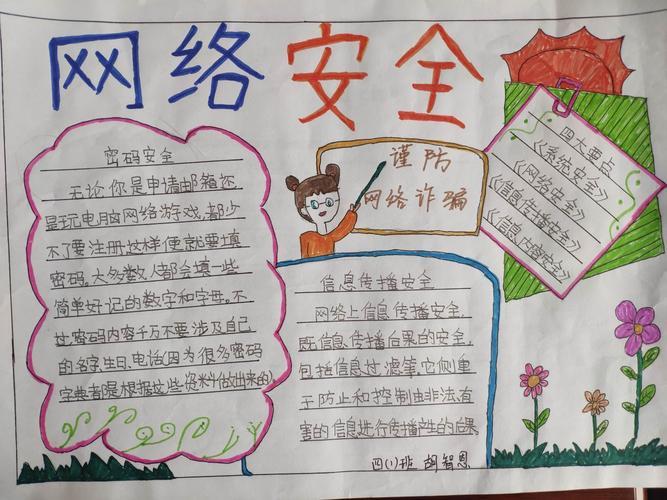 网络安全
密码安全
无论你是申请邮箱还
是玩电脑网络游戏,都少
不了要注册,这样便就要填
密码。大多数人都会填一些
简单好记的数字和字母。不
过,密码内容千万不要涉及自己
的名字、生日、电话(因为很多密码
字典者都是根据这些资料做出来的)
谨防
网络诈骗
四大要点
《系统安全》
《网络安全》
《信息传播安全》
《信息内容安全》
信息传播安全
网络上信息传播安全,
既信息传播后果的安全,
包括信息过滤笔,它侧重
于防止和控制由非法、有
害的信息进行传播产生的后果。
四(1)班 胡智恩